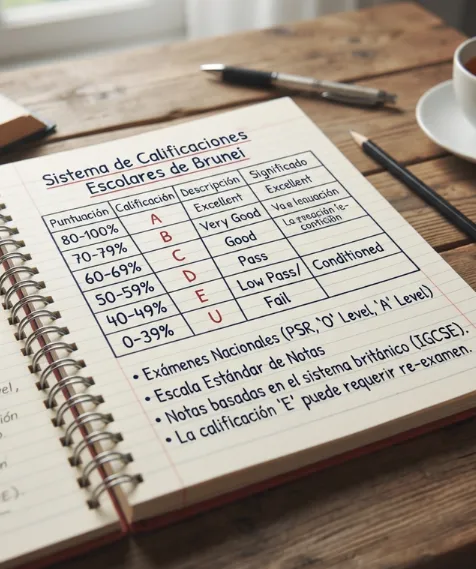 Sistema de Calificaciones
Escolares de Brunei
Puntuación Calificación Descripción Significado
80-100% A Excellent Excellent
70-79% B Very Good
60-69% C Good
50-59% D Pass
40-49% E Low Pass/ Conditioned
0-39% U Fail
• Exámenes Nacionales (PSR, 'O' Level, 'A' Level)
• Escala Estándar de Notas
• Notas basadas en el sistema británico (IGCSE).
• La calificación 'E' puede requerir re-examen.